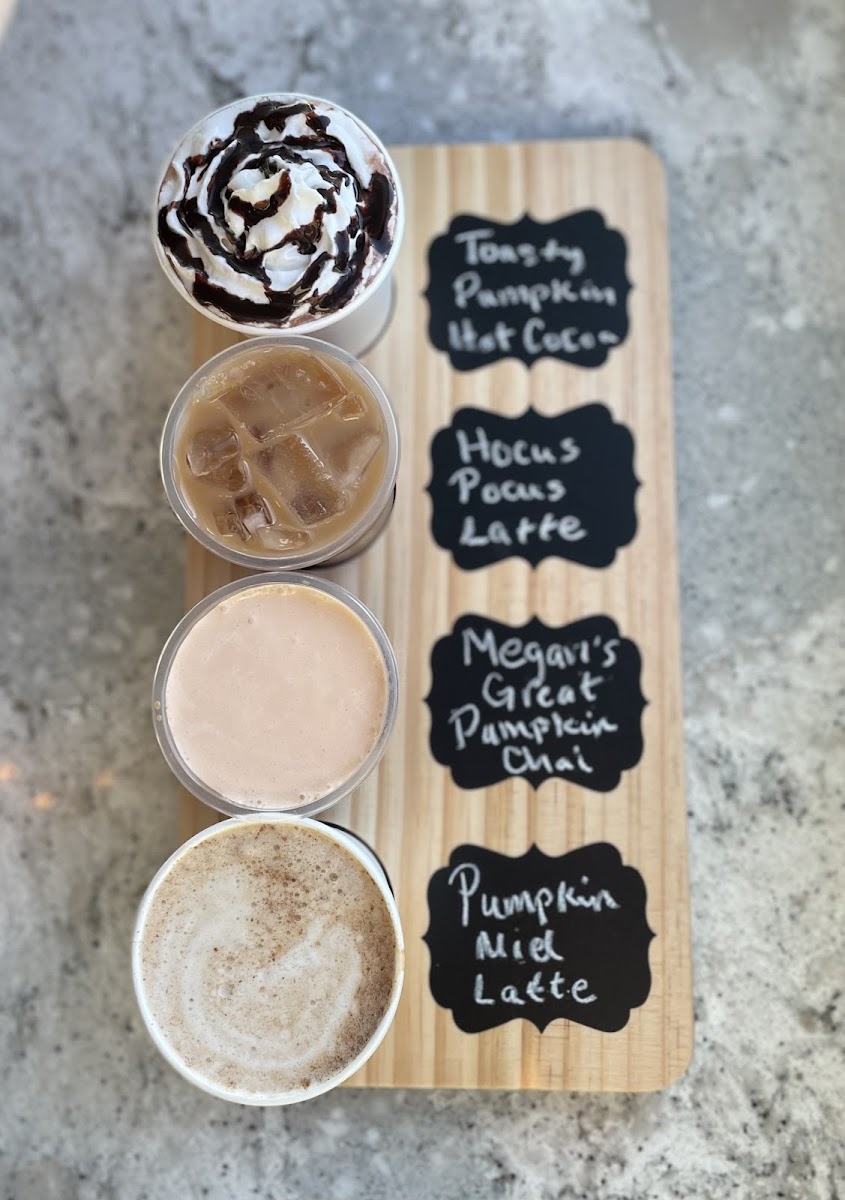 Toasty
Pumpkin
Hot Cocoa
Hocus
Pocus
Latte
Megan's
Great
Pumpkin
Chai
Pumpkin
Miel
Latte